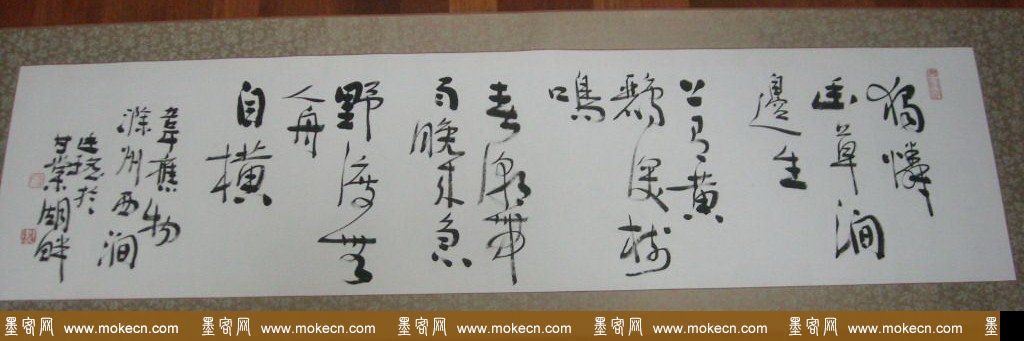 獨憐
幽草澗
邊生
上有黃
鸝深樹
鳴
春潮帶
雨晚來急
野渡無
人舟
自橫
韋應物
滁州西澗
於
甘棠湖畔
墨客网 www.mokecn.com 墨客网 www.mokecn.com 墨客网 www.mokecn.com 墨客网 www.mokecn.com 墨客网 www.mokecn.com 墨客网